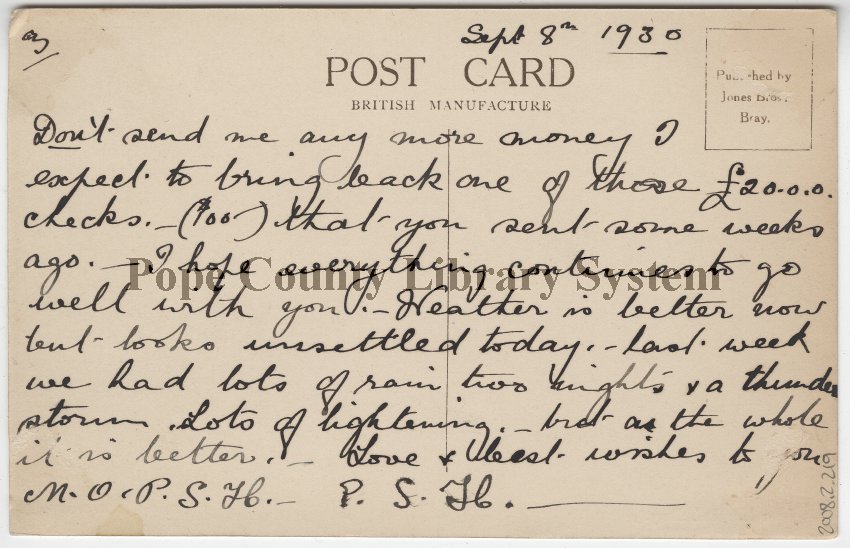 3)
Sept 8th 1930
POST CARD
BRITISH MANUFACTURE
Published by
Jones Bros.
Bray.
Don't send me any more money I
expect to bring back one of those £20.0.0.
checks. - ($100-) that you sent some weeks
ago. - I hope everything continues to go
well with you. - Weather is better now
but looks unsettled today. - last week
we had lots of rain two nights & a thunder
storm. Lots of lightening. - but on the whole
it is better. - Love & best wishes to you
M.O.P.S.H. - P.S.H.
Pope County Library System
2008.2.219